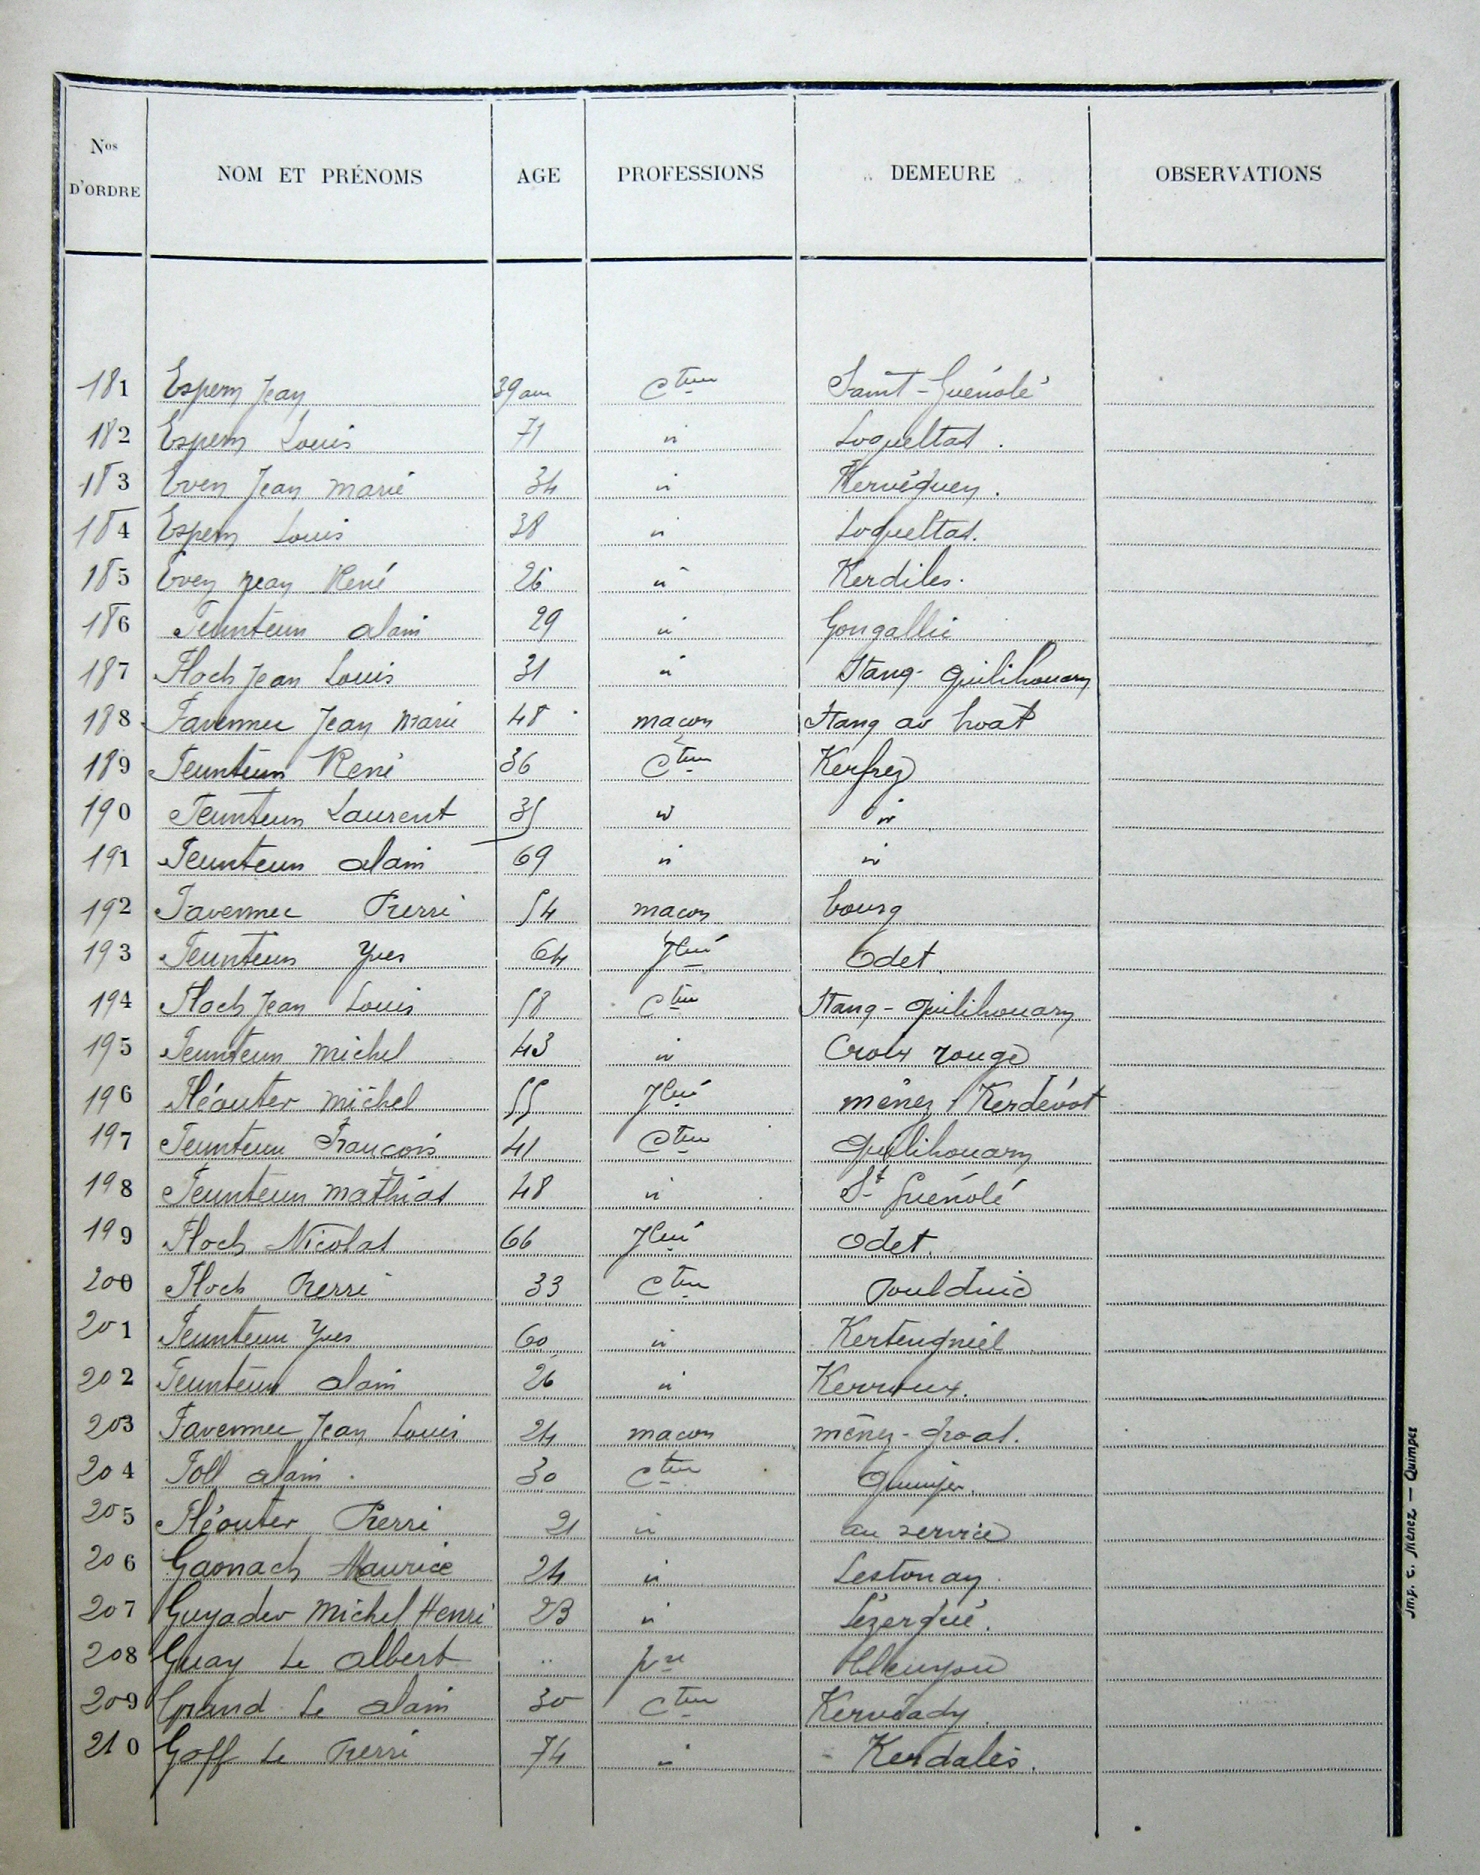 Nos D'ORDRE NOM ET PRÉNOMS AGE PROFESSIONS DEMEURE OBSERVATIONS
181 Espern Jean 39 ans Cteur Saint-Guénolé
182 Espern Louis 71 " Loqueltas.
183 Even Jean Marie 34 " Kervéguen.
184 Espern Louis 38 " Loqueltas.
185 Even Jean René 26 " Kerdiles.
186 Feunteun alain 29 " Gongallic
187 Floch Jean Louis 31 " Stang-quilihouarn
188 Favennec Jean Marie 48 macon Stang ar hoat
189 Feunteun René 36 Cteur Kerfrez
190 Feunteun Laurent 35 " "
191 Feunteun alain 69 " "
192 Favennec Pierre 54 macon bourg
193 Feunteun Yves 64 Jlier Odet.
194 Floch Jean Louis 58 Cteur Stang-quilihouarn
195 Feunteun michel 43 " Croix rouge
196 Fléouter michel 55 Jlier ménez Kerdévot
197 Feunteun François 41 Cteur quilihouarn
198 Feunteun mathias 48 " St Guénolé
199 Floch Nicolas 66 Jlier Odet.
200 Floch Pierre 33 Cteur Poulduic
201 Feunteun Yves 60 "
202 Feunteun alain 26 " Kerroux.
203 Favennec Jean Louis 24 macon ménez-groas.
204 Foll alain. 30 Cteur
205 Fléouter Pierre 21 " au service
206 Gaonach Maurice 24 " Lestonan.
207 Guyader michel Henri 23 " Lézergué.
208 Guay Le albert .. pre
209 Grand Le alain 30 Cteur Kervéady.
210 Goff Le Pierre 74 " Kerdalès.
Imp. C. Ménez — Quimper